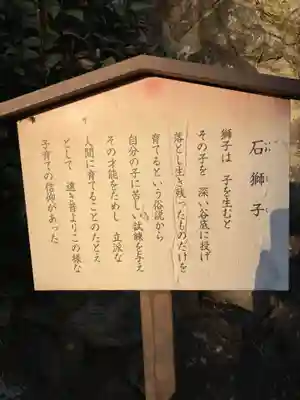 石獅子
いしじし
獅子は 子を生むと
その子を 深い谷底に投げ
落とし生き残ったものだけを
育てるという俗説から
自分の子に苦しい試練を与え
その才能をためし 立派な
人間に育てることのたとえ
として 遠き昔よりこの様な
子育ての信仰があった